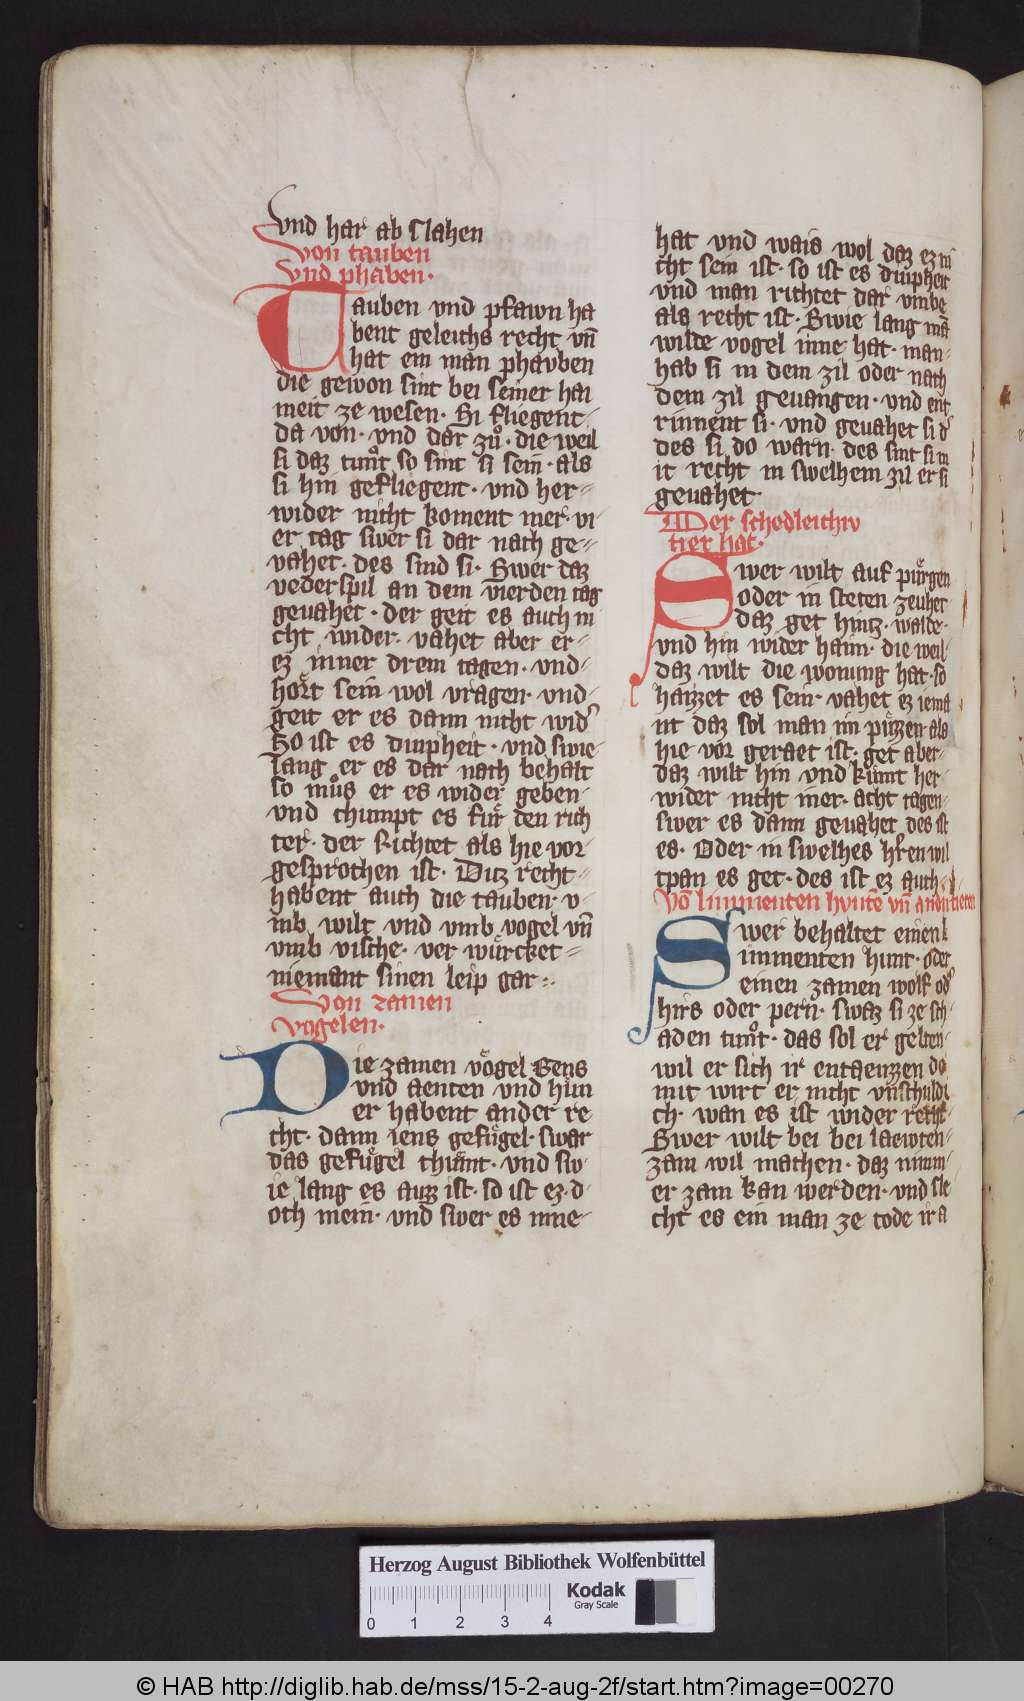 vnd har ab slahen
Von tauben
vnd phaben·
Tauben vnd pfawn ha
bent geleichs recht vn̄
hat ein man phavben
die gewon sint bei seiner hai
meit ze wesen· Si fliegent·
da von· vnd dar zuͦ· die weil
si daz tunt so sint si sein· als
si hin gefliegent· vnd her-
wider nicht koment mer· vi
er tag swer si dar nach ge-
vahet· des sind si· Swer daz
vederspil an dem vierden tag
gevahet· der geit es auch ni
cht wider· vahet aber er-
ez inner drein tagen· vnd-
hört sein wol vragen· vnd-
geit er es dann nicht wid'
So ist es diupheit· vnd swie-
lang er es dar nach behalt
so muͦs er es wider geben-
vnd chumpt es fuͤr den rich
ter· der Richtet als hie vor-
gesprochen ist· Ditz recht-
habent auch die tauben· v-
mb wilt vnd vmb vogel vn̄
vmb vische· ver wuͤrcket-
niemant sinen leip gar·
Von zamen
vogelen·
Die zamen vögel Gens
vnd aenten vnd hün
er habent ander re
cht· dann iens gefuͤgel· swar
das gefuͤgel chuͤmt· vnd sw-
ie lang es auzz ist· so ist ez· d-
och mein· vnd swer es inne-
hat vnd wais wol daz ez ni
cht sein ist· so ist es diupheit
vnd man richtet dar vmbe
als recht ist· Swie lang mā
wilde vogel inne hat· man-
hab si in dem zil oder nach
dem zil gevangen· vnd ent
rinnent si· vnd gevahet si d'
des si do warn· des sint si m
it recht in swelhem zil er si
gevahet·
Wer schedleichiv
tier hat·
Swer wilt auf puͤrgen
oder in steten zeuhet
daz get hintz· walde·
vnd hin wider haim· die weil-
daz wilt die wonung hat· so
haizzet es sein· vahet ez iema
nt daz sol man im puͤzzen als
hie vor geraet ist· get aber-
daz wilt hin vnd kuͤmt her-
wider nicht iner· acht tagen-
swer es dann gevahet des ist
es· Oder in swelhes h'ren wil
tpan es get· des ist ez auch·
Vō limmenten hvnt̄e vn̄ and'n tieren
Swer behaltet einen l
immenten hunt· oder
einen zamen wolf od'
hirs oder pern· swaz si ze sch-
aden tunt· das sol er gelten-
wil er sich ir entaeuzzen do
mit wirt er nicht vnschuldi
ch· wan es ist wider recht·
Swer wilt bei bei laewten-
zam wil machen· daz nimm-
er zam kan werden· vnd sle
cht es ein man ze tode ir a
Herzog August Bibliothek Wolfenbüttel
0 1 2 3 4
Kodak
Gray Scale
© HAB http://diglib.hab.de/mss/15-2-aug-2f/start.htm?image=00270